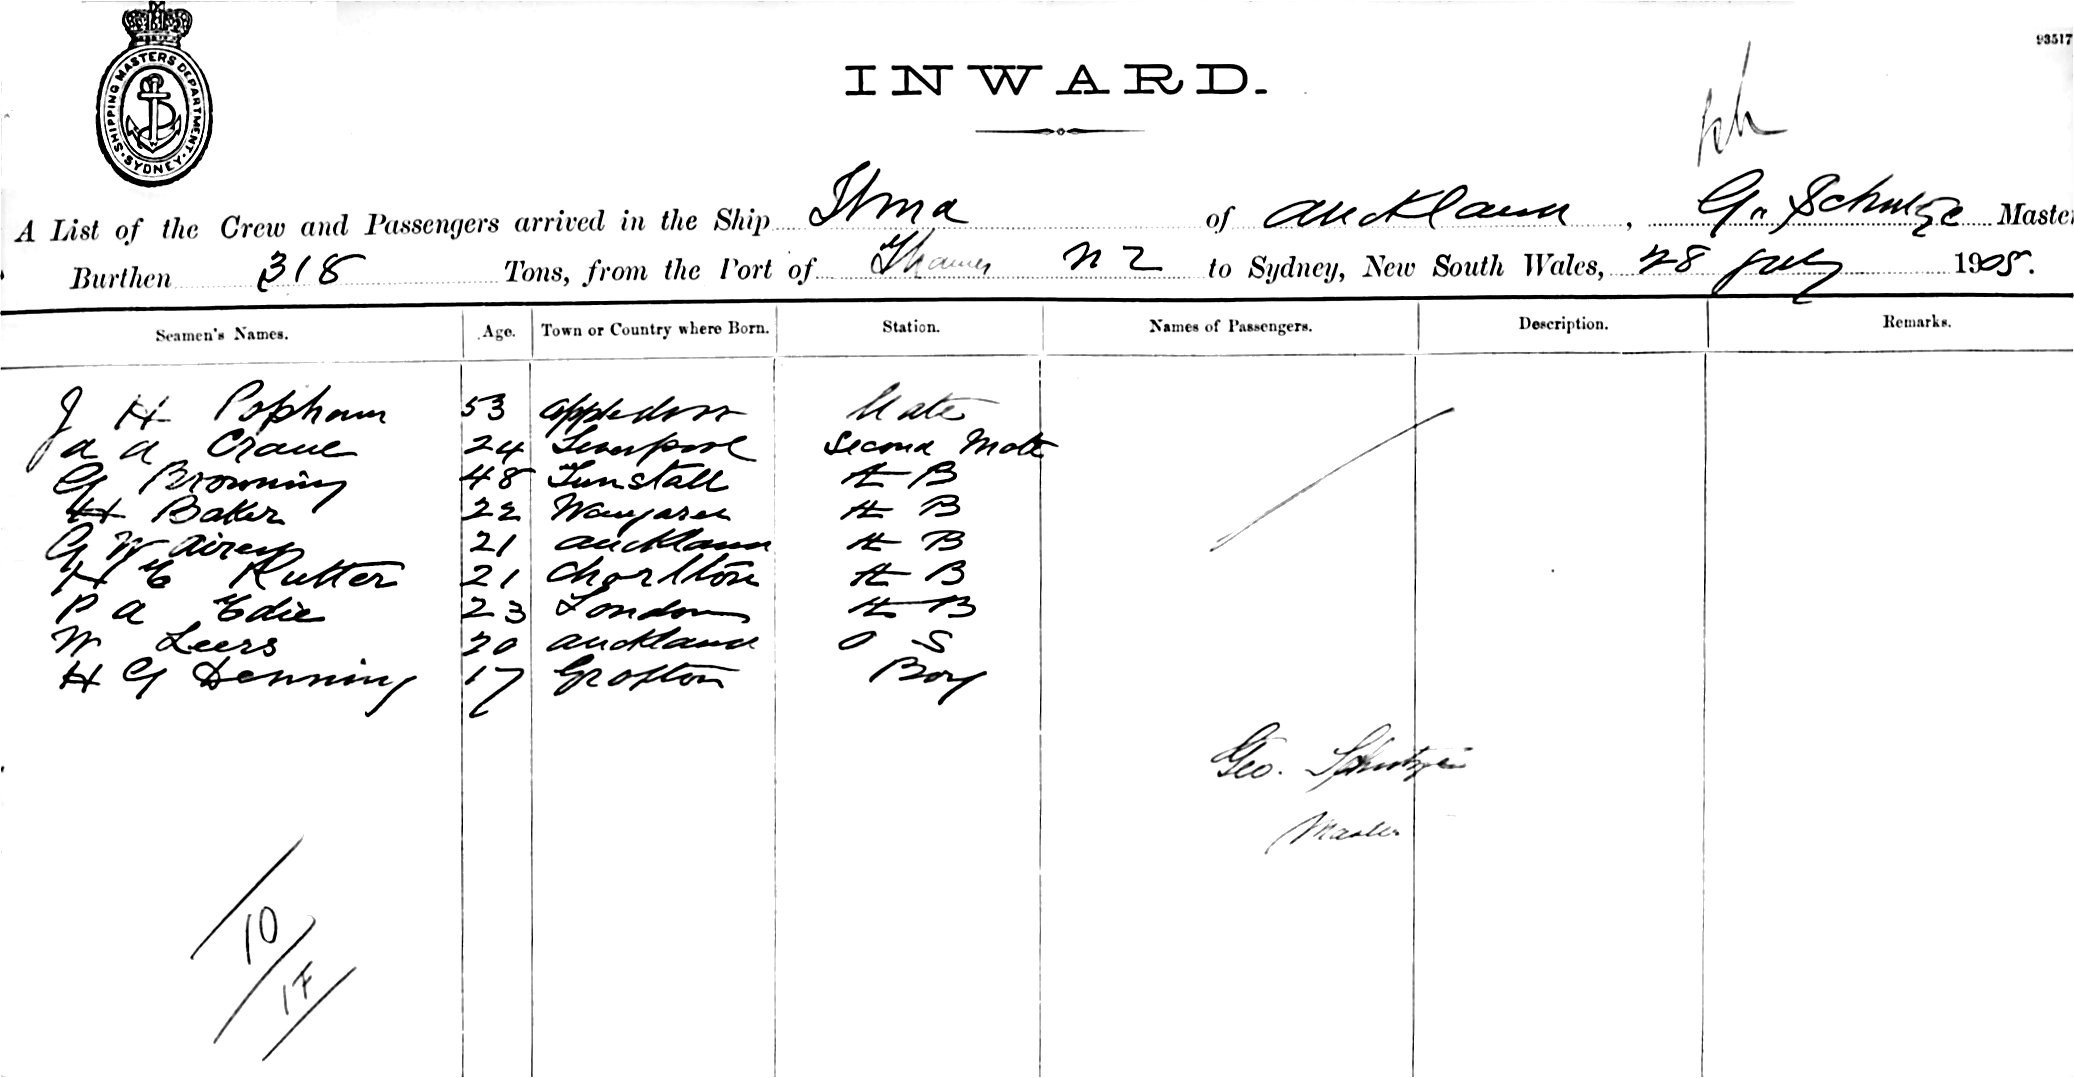 SHIPPING MASTERS DEPARTMENT · SYDNEY ·
93517
INWARD.
A List of the Crew and Passengers arrived in the Ship Ilma of Auckland, G. Schulze Master
Burthen 318 Tons, from the Port of Thames N Z to Sydney, New South Wales, 28 July 1905.
Seamen's Names. Age. Town or Country where Born. Station. Names of Passengers. Description. Remarks.
J H Popham 53 Appledore Mate
A A Crane 24 Liverpool Second Mate
G Browning 48 Tunstall A B
H Baker 22 A B
G W Airey 21 Auckland A B
H E Rutter 21 Chorlton A B
P A Edie 23 London A B
W Leers 20 Auckland O S
H G Denning 17 Grafton Boy
Geo.
Master
10
1F